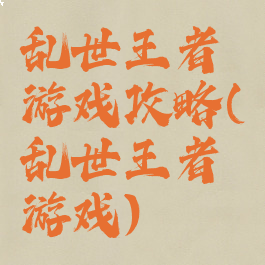 乱世王者
游戏攻略(
乱世王者
游戏)